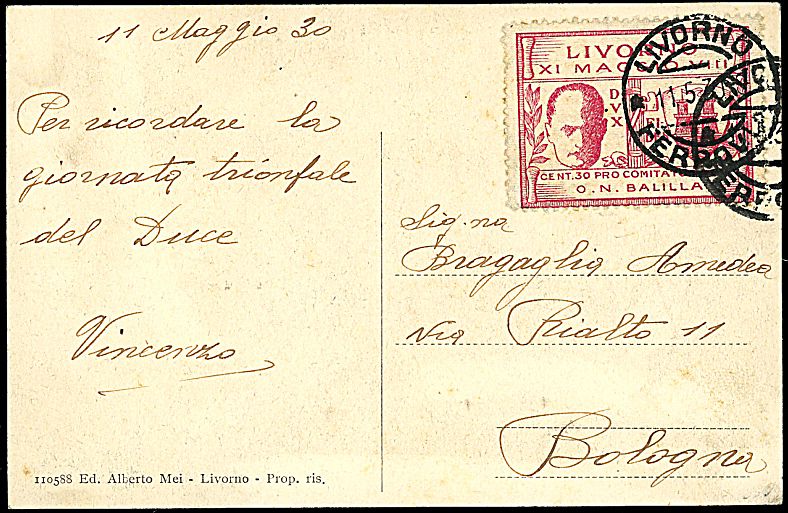 11 Maggio 30
Per ricordare la
giornata trionfale
del Duce
Vincenzo
110588 Ed. Alberto Mei - Livorno - Prop. ris.
LIVORNO
XI MAGGIO VIII
CENT. 30 PRO COMITATO
O. N. BALILLA
LIVORNO
11.5.30
FERROVIA
Sig.na
Bragaglia Amedea
via Rialto 11
Bologna